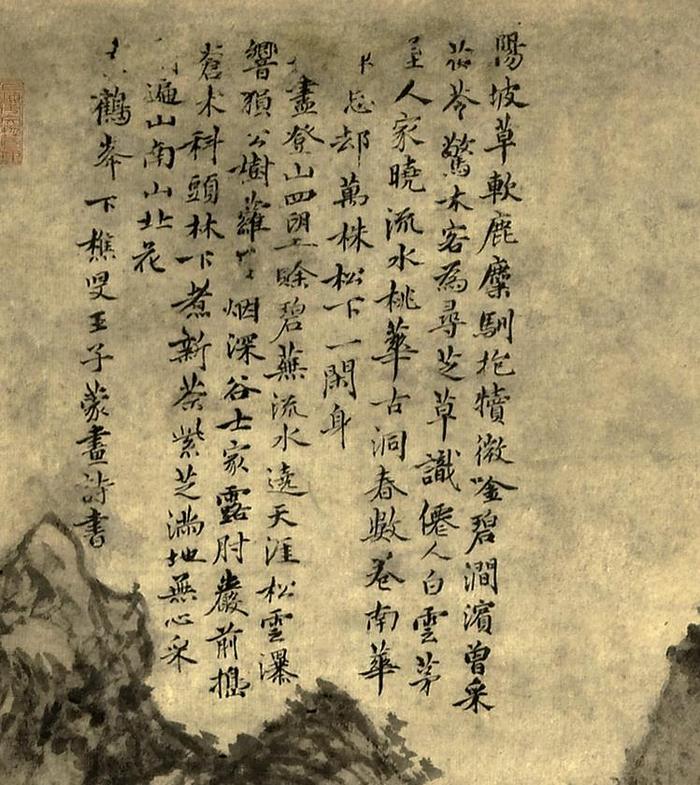 陽坡草軟鹿麋馴抱犢微唫碧澗濱曾采
茯苓驚木客為尋芝草識僊人白雲茅
屋人家曉流水桃華古洞春數卷南華
忘却萬株松下一閑身
盡登山四望賒碧蕪流水遶天涯松雲瀑
響猿公樹蘿烟深谷士家露肘巖前
蒼木科頭林下煮新茶紫芝滿地無心采
遍山南山北花
鶴峯下樵叟王子蒙畫詩書